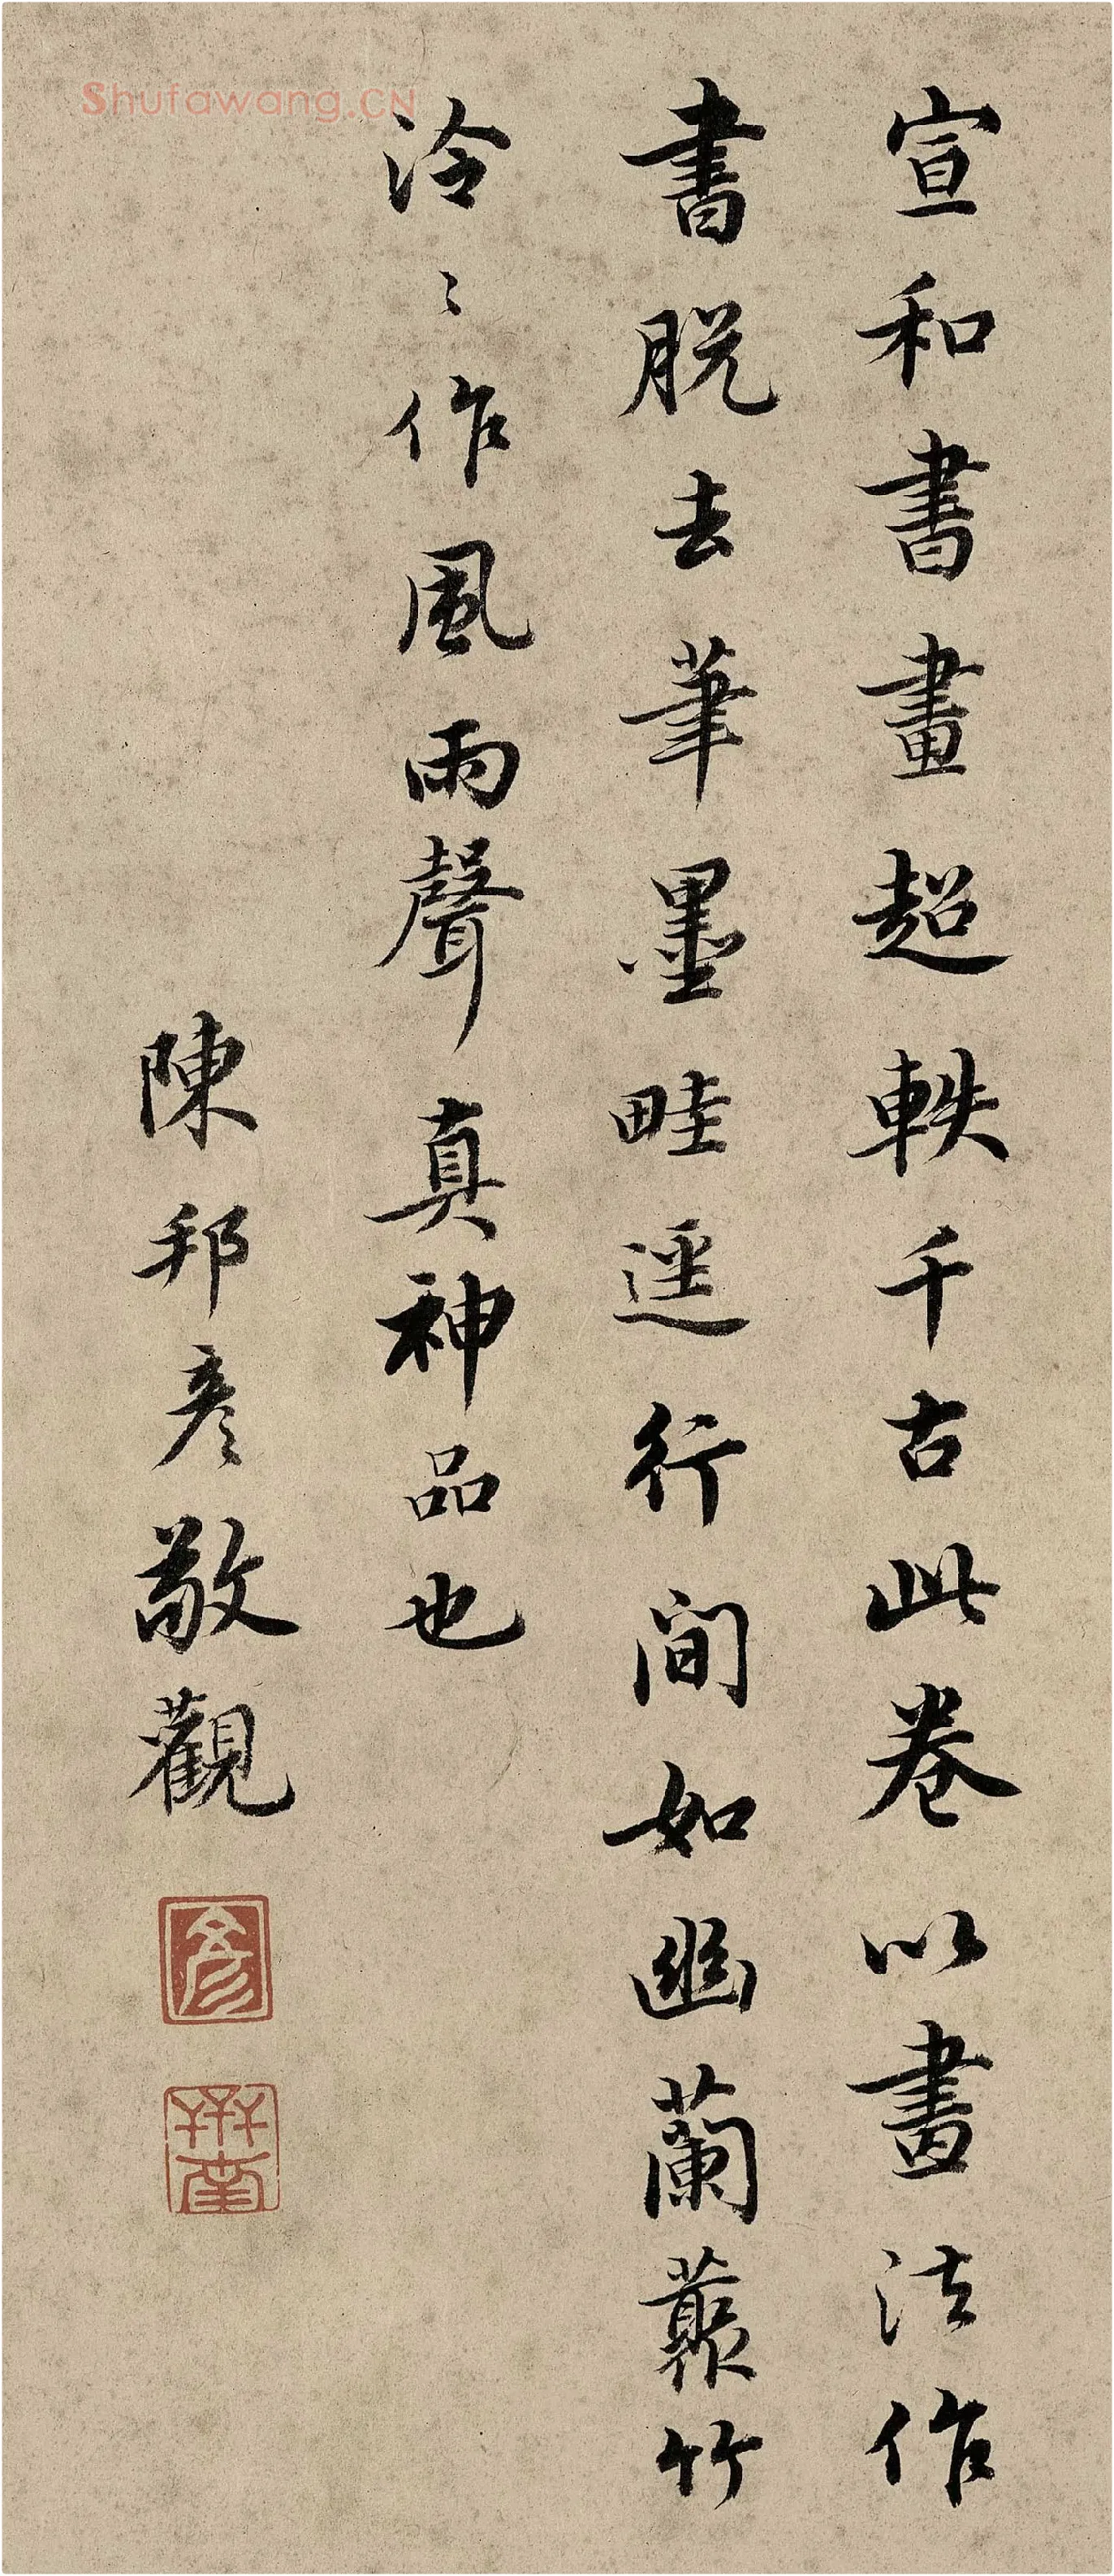 宣和書畫超軼千古此卷以畫法作
書脱去筆墨畦逕行間如幽蘭藂竹
泠〻作風雨聲真神品也
陳邦彦敬觀
彦
Shufawang.CN